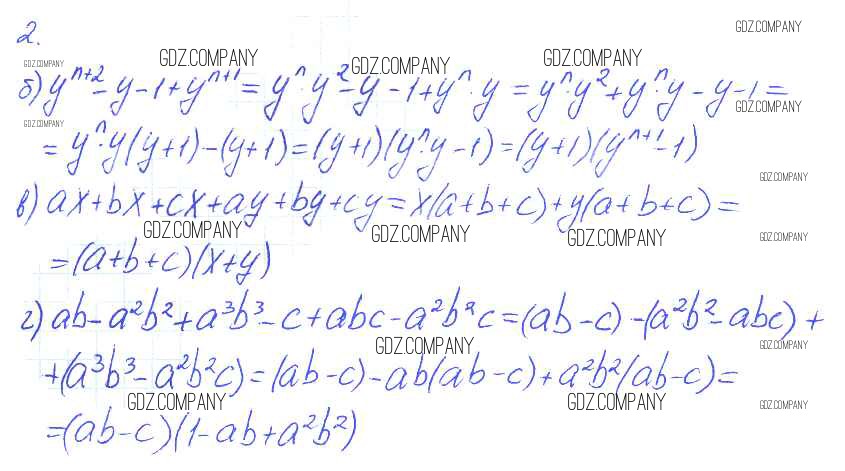 2.
GDZ.COMPANY
GDZ.COMPANY GDZ.COMPANY GDZ.COMPANY GDZ.COMPANY
б) yⁿ⁺² - y - 1 + yⁿ⁺¹ = yⁿ·y² - y - 1 + yⁿ·y = yⁿy² + yⁿy - y - 1 =
GDZ.COMPANY
GDZ.COMPANY
= yⁿ·y(y+1) - (y+1) = (y+1)(yⁿy - 1) = (y+1)(yⁿ⁺¹ - 1)
GDZ.COMPANY
в) ax + bx + cx + ay + by + cy = x(a+b+c) + y(a+b+c) =
GDZ.COMPANY GDZ.COMPANY GDZ.COMPANY GDZ.COMPANY
= (a+b+c)(x+y)
г) ab - a²b² + a³b³ - c + abc - a²b²c = (ab - c) - (a²b² - abc) +
GDZ.COMPANY GDZ.COMPANY
+ (a³b³ - a²b²c) = (ab - c) - ab(ab - c) + a²b²(ab - c) =
GDZ.COMPANY GDZ.COMPANY GDZ.COMPANY
= (ab - c)(1 - ab + a²b²)